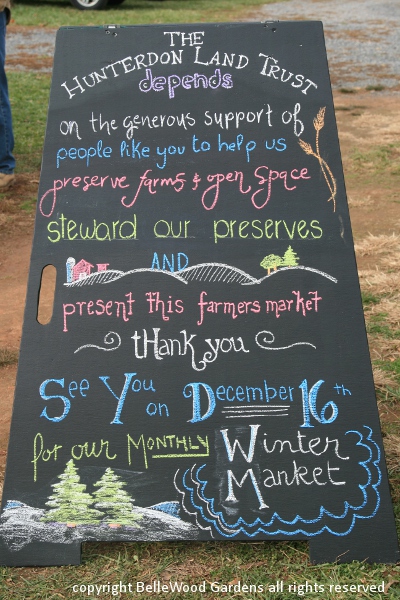 THE
HUNTERDON LAND TRUST
depends
on the generous support of
people like you to help us
preserve farms & open space
steward our preserves
AND
present this farmers market
tHank you
See You
on December 16th
for our MONTHLY Winter
Market
copyright BelleWood Gardens all rights reserved